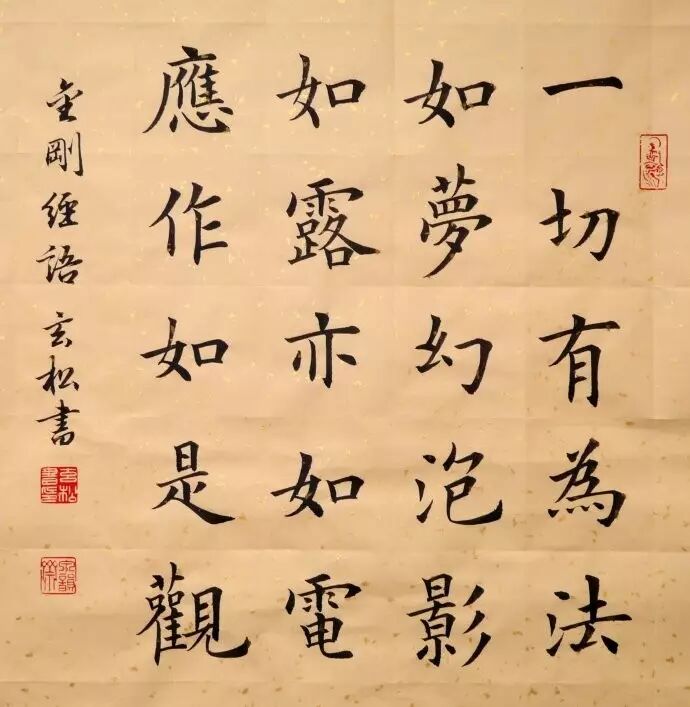 一切有為法
如夢幻泡影
如露亦如電
應作如是觀
金剛經語 玄松書
玄松書印